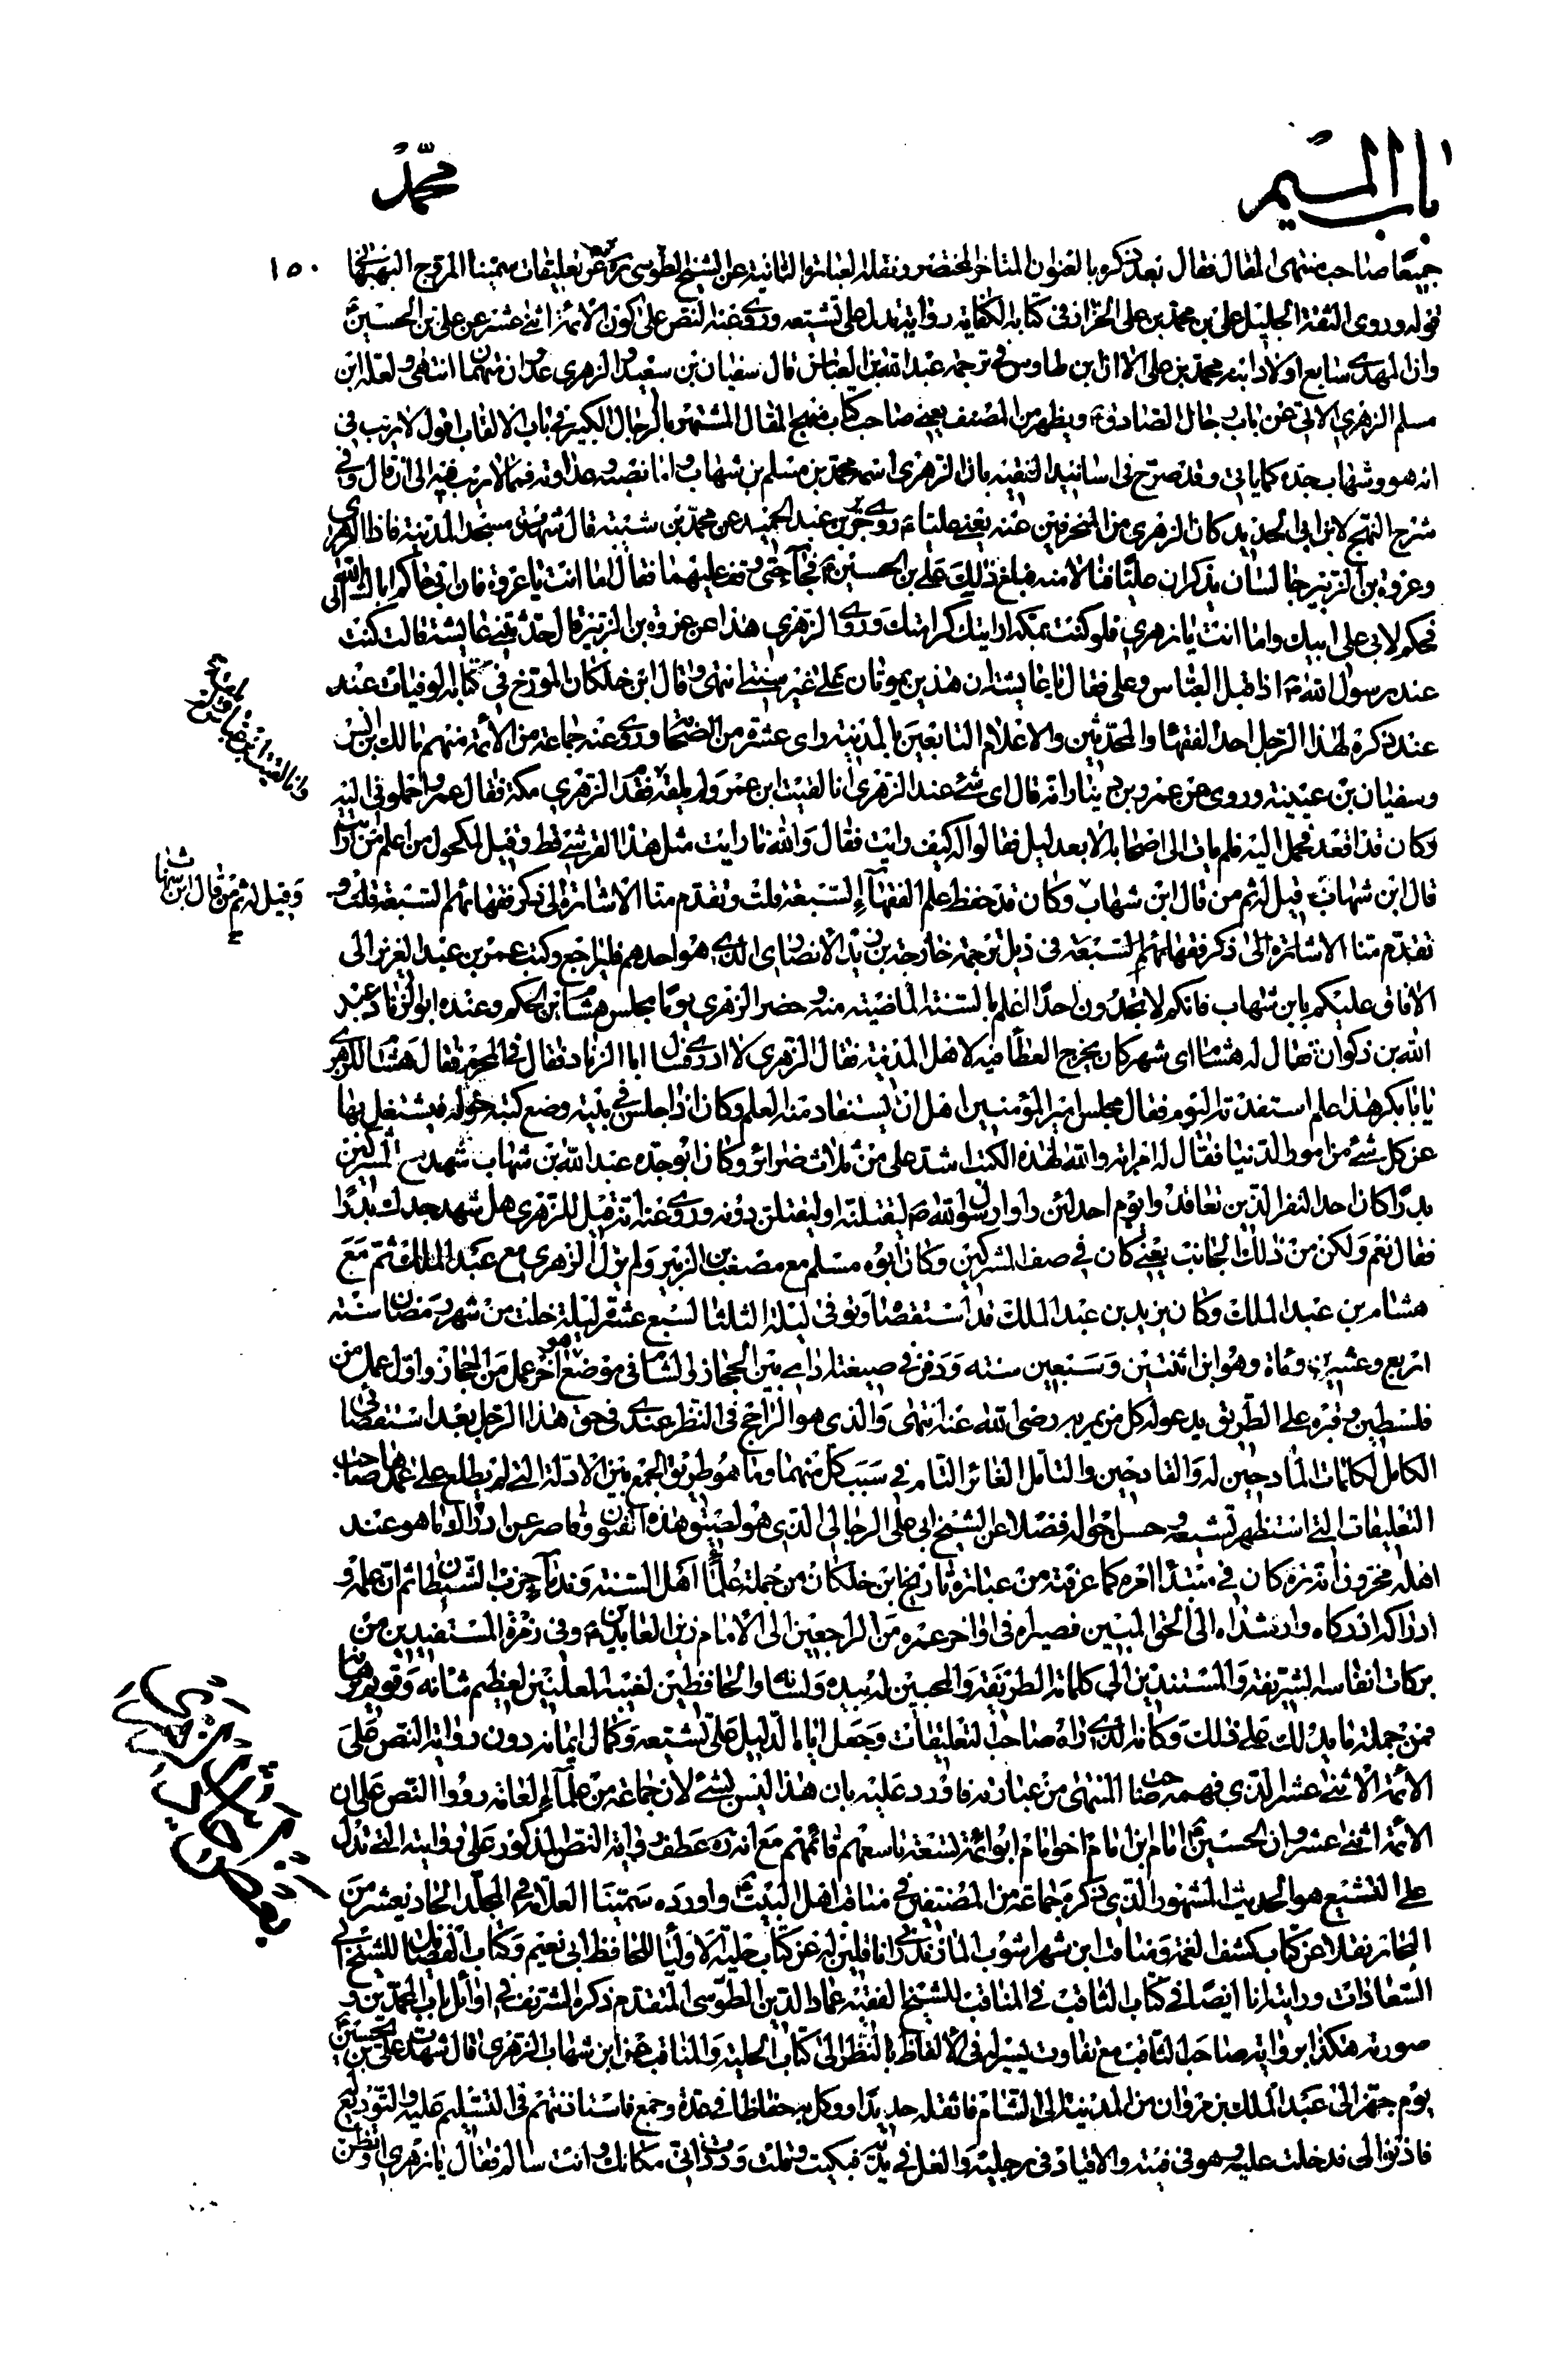 باب الميم
محمّد
١٥٠
جميعًا صاحب منتهى المقال فقال بعد ذكره بالعنوان المتاخر المختصر ونقله لعبارة الثانية عن الشيخ الطوسى ره عن تعليقات سميّنا المروج البهبهانى
قوله وروى الثقة الجليل على بن محمد بن على الخزاز فى كتابه الكفاية رواية تدل على تشيعه وروى عنه النص على كون الائمة اثنى عشر عن على بن الحسين ع
وان المهدى سابع اولاد ابنه محمد بن على الا ان ابن طاوس فى ترجمة عبد الله بن العباس قال سفيان بن سعيد والزهرى عدوان متهمان انتهى ولعله ابن
مسلم الزهرى الاتى عن باب رجال الصادق ع ويظهر من المصنف يعنى صاحب كتاب منهج المقال المشتهر بالرجال الكبير فى باب الالقاب اقول لا ريب فى
انه هو وشهاب جده كما ياتى وقد صرح فى اسانيد الفقيه بان الزهرى اسمه محمد بن مسلم بن شهاب واما نصبه وعداوته فمما لا ريب فيه الى ان قال وفى
شرح النهج لابن ابى الحديد كان الزهرى من المنحرفين عنه يعنى عليّا ع روى جرير بن عبد الحميد عن محمد بن شيبة قال شهدت مسجد المدينة فاذا الزهرى
وعروة بن الزبير جالسان يذكران عليّا فنالا منه فبلغ ذلك على بن الحسين ع فجآء حتى وقف عليهما فقال اما انت يا عروة فان ابى حاكم اباك الى الله
فحكم لابى على ابيك واما انت يا زهرى فلو كنت بمكة لاريتك كرامتك وروى الزهرى هذا عن عروة بن الزبير قال حدثتنى عايشة قالت كنت
عند رسول الله ص اذ اقبل العباس وعلى فقال يا عايشة ان هذين يموتان على غير سنتى انتهى وقال ابن خلكان المورخ فى كتابه الوفيات عند
عند ذكره لهذا الرجل احد الفقهاء والمحدثين والاعلام التابعين بالمدينة راى عشرة من الصحابة وروى عنه جماعة من الأئمة منهم مالك بن انس
وسفيان بن عيينة وروى عن عمرو بن دينار انه قال اى شئ عند الزهرى انا لقيت ابن عمر ولم يلقه فقدم الزهرى مكة فقال عمرو احملونى اليه
وكان قد اقعد فحمل اليه فلم يات الى اصحابه الا بعد ليل فقالوا له كيف رايت فقال والله ما رايت مثل هذا القرشى قط وقيل لمكحول من اعلم من رايت
قال ابن شهاب قيل له ثم من قال ابن شهاب وكان قد حفظ علم الفقهآء السبعة قلت وتقدم منا الاشارة الى ذكر فقهائهم السبعة قلت و
تقدم منا الاشارة الى ذكر فقهائهم السبعة فى ذيل ترجمة خارجة بن زيد الانصارى الذى هو احدهم فليراجع وكتب عمر بن عبد العزيز الى
الافاق عليكم بابن شهاب فانكم لا تجدون احدًا اعلم بالسنة الماضية منه وحضر الزهرى يومًا مجلس هشام بن الحكم وعنده ابو الزناد عبد
الله بن ذكوان فقال له هشام اى شهر كان يخرج العطا فيه لاهل المدينة فقال الزهرى لا ادرى فسال ابا الزناد فقال فى المحرم فقال هشام للزهرى
يا ابا بكر هذا علم استفدته اليوم فقال مجلس امير المؤمنين اهل ان يستفاد منه العلم وكان اذا جلس فى بيته وضع كتبه حوله فيشتغل بها
عن كل شئ من امور الدنيا فقال له امراته والله لهذه الكتب اشد على من ثلاث ضرائر وكان ابو جده عبد الله بن شهاب شهد مع المشركين
بدرًا كان احد النفر الذين تعاقدوا يوم احد لئن راوا رسول الله ص ليقتلنه او ليقتلن دونه وروى عنه انه قيل للزهرى هل شهد جدك بدرًا
فقال نعم ولكن من ذلك الجانب يعنى كان فى صف المشركين وكان ابوه مسلم مع مصعب بن الزبير ولم يزل الزهرى مع عبد الملك ثم مع
هشام بن عبد الملك وكان يزيد بن عبد الملك قد استقضاه وتوفى ليلة الثلثا لسبع عشرة ليلة خلت من شهر رمضان سنة
اربع وعشرين وماة وهو ابن اثنتين وسبعين سنة ودفن فى ضيعته ادامى بين الحجاز والشام فى موضع هو آخر عمل من الحجاز واول عمل من
فلسطين وقبره على الطريق يدعو له كل من يمر به رضى الله عنه انتهى والذى هو الراجح فى النظر عندى فى حق هذا الرجل بعد استقصائى
الكامل لكلمات المادحين له والقادحين والتامل الغائر التام فى سبب كل منهما وما هو طريق الجمع بين الادلة التى لم يطلع على عمدها صاحب
التعليقات التى استظهر تشيعه وحسن حوله فضلا عن الشيخ ابى على الرجالى الذى هو لصيق هذه الفنون وقاصر عن ادراك ما هو عند
اهله مخزون انه كان فى مبتدا امره كما عرفته من عبارة تاريخ ابن خلكان من جملة علماء اهل السنة وندمآء حزب الشيطان ثم ان علمه و
ادراكه ادركاه وارشداه الى الحق المبين فصيراه فى اواخر عمره من الراجعين الى الامام زين العابدين ع وفى زمرة المستفيدين من
بركات انفاسه الشريفة والمستندين الى كلماته الطريفة والمحبين له بيده ولسانه والحافظين لغيبه المعلنين لعظيم شانه
فمن جملة ما يدلك على ذلك وكانه الذى راه صاحب التعليقات وجعل اياه الدليل على تشيعه وكمال ايمانه دون رواية النص على
الأئمة الاثنى عشر الذى فهمه صاحب المنتهى من عبارته فاورد عليه بان هذا ليس بشئ لان جماعة من علمآء العامة رووا النص على ان
الائمة اثنى عشر وان الحسين ع امام ابن امام اخو امام ابو ائمة تسعة تاسعهم قائمهم مع انه ره عطف رواية النص المذكور على روايته التى تدل
على التشيع هو الحديث المشهور الذى ذكره جماعة من المصنفين فى مناقب اهل البيت ع واورده سميّنا العلامة فى المجلد الحاد يعشر من
البحار نقلا عن كتاب كشف الغمة ومناقب ابن شهراشوب المازندرانى ناقلين له عن كتاب حلية الاوليا للحافظ ابى نعيم وكتاب الفضائل للشيخ ابى
السعادات ورايته انا ايضًا فى كتاب الثاقب فى المناقب للشيخ الفقيه عماد الدين الطوسى المتقدم ذكره الشريف فى اوائل باب المحمدين و
صورته هكذا برواية صاحب الثاقب مع تفاوت يسير له فى الالفاظ بالنظر الى كتاب الحلية والمناقب عن ابن شهاب الزهرى قال شهدت على بن الحسين ع
يوم جهز الى عبد الملك بن مروان من المدينة الى الشام فاثقله حديدًا ووكل به حفاظا فى عدة وجمع فاستاذنتهم فى التسليم عليه والتوديع
فاذنوا لى فدخلت عليه وهو فى قبته والاقياد فى رجليه والغل فى يديه فبكيت وقلت وددت انى مكانك وانت سالم فقال يا زهرى اوتظن
وقيل له ثم من قال ابن شهاب